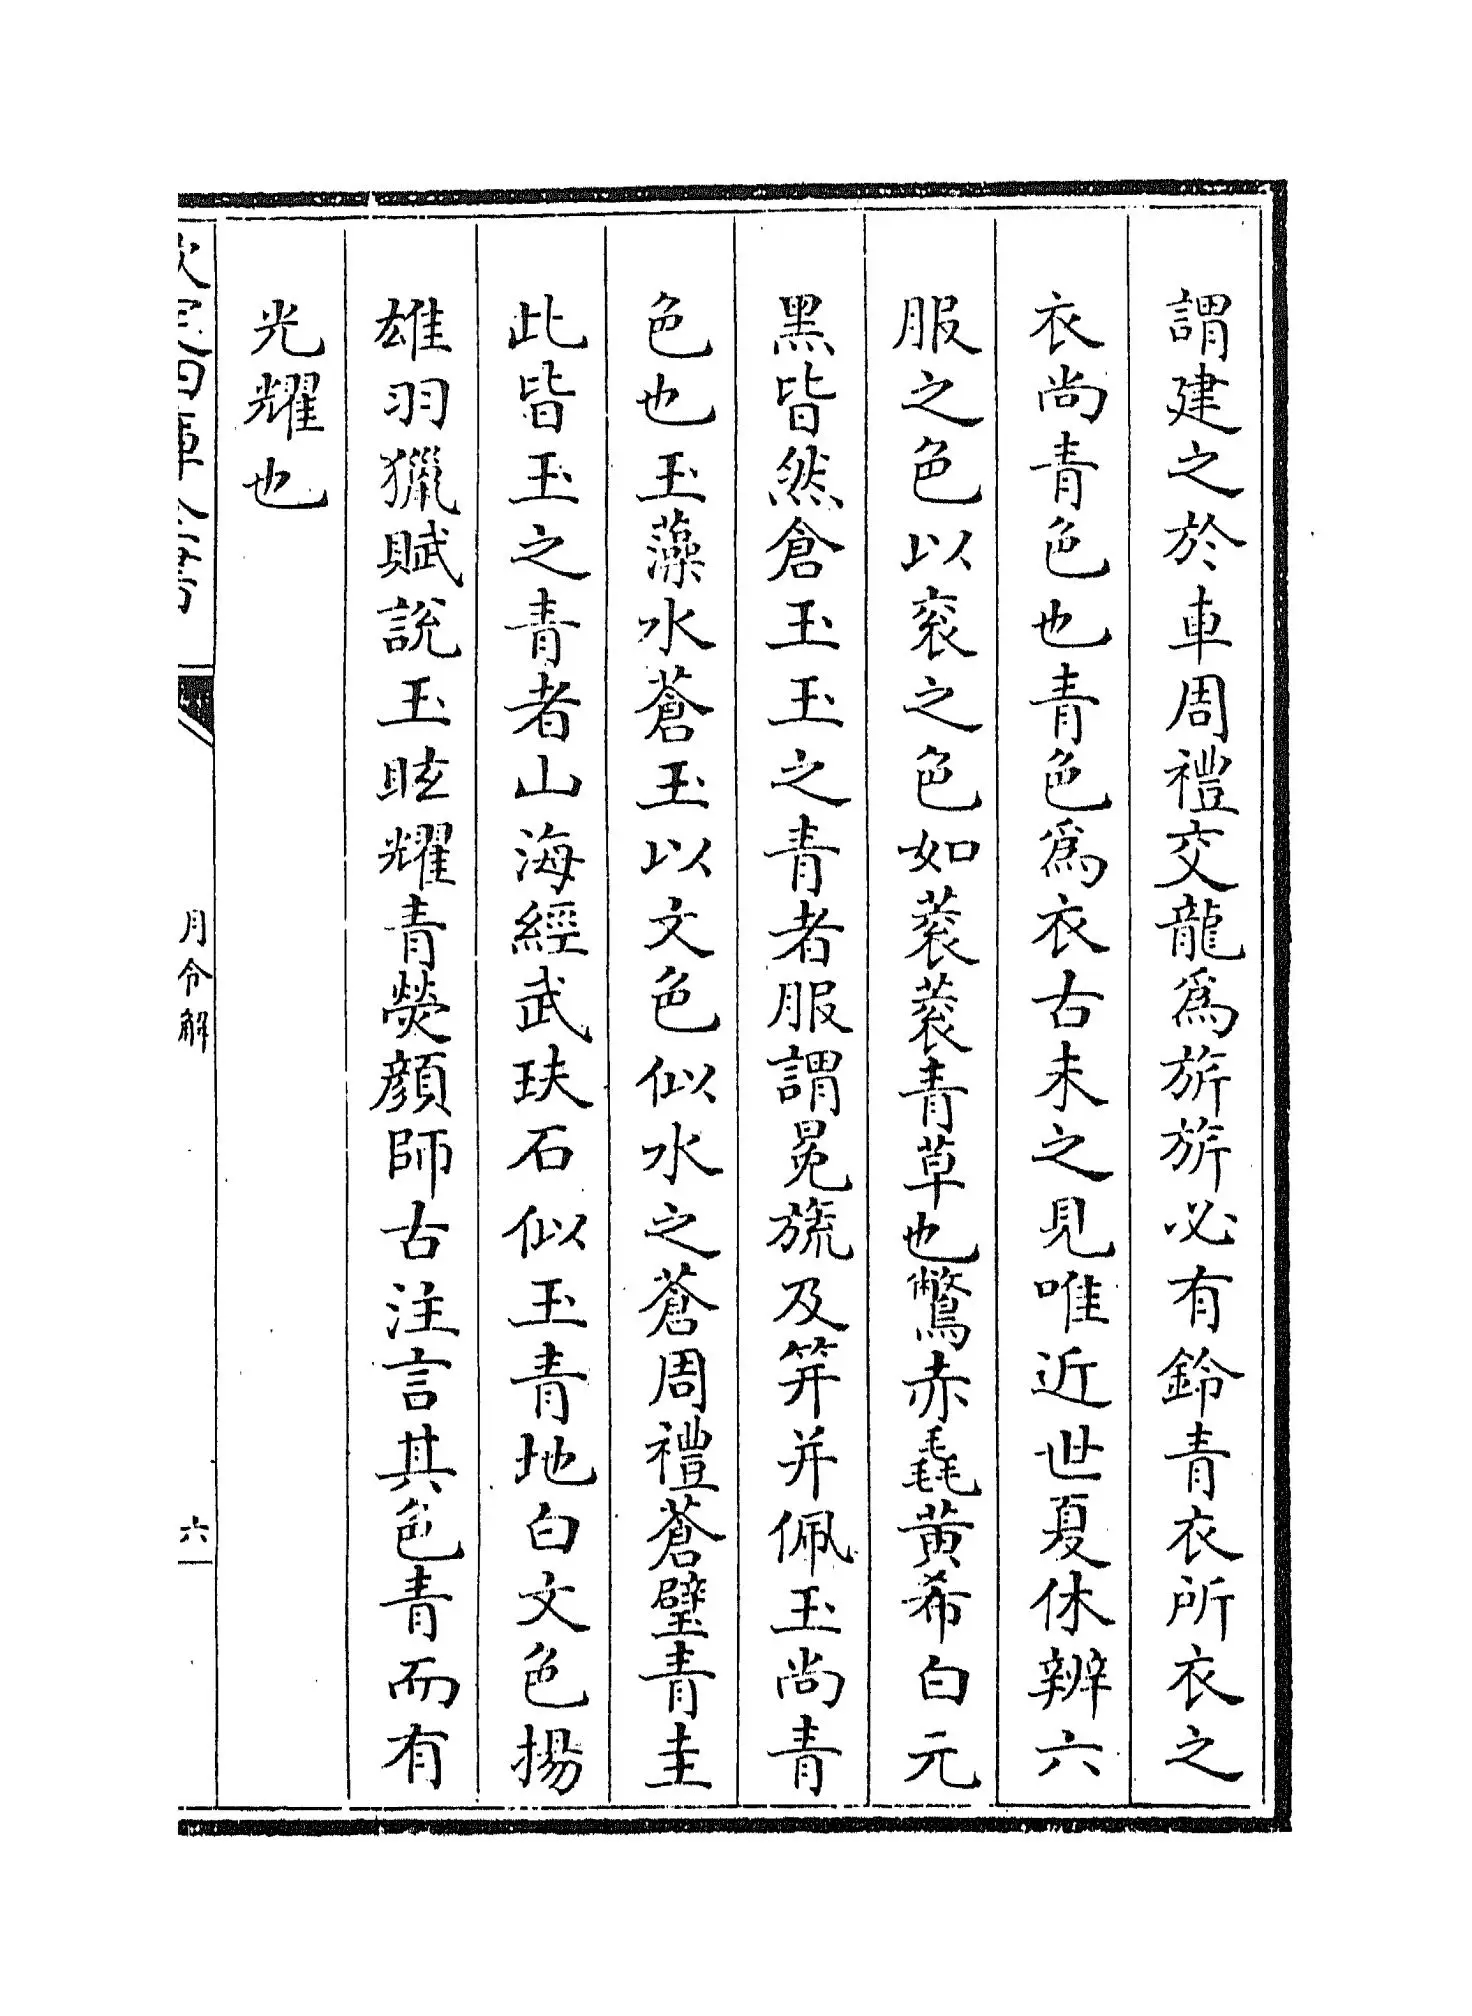 謂建之於車周禮交龍為旂旂必有鈴青衣所衣之
衣尚青色也青色為衣古未之見唯近世夏休辨六
服之色以衮之色如蔉蔉青草也鷩赤毳黄希白元
黑皆然倉玉玉之青者服謂冕旒及笄并佩玉尚青
色也玉藻水蒼玉以文色似水之蒼周禮蒼璧青圭
此皆玉之青者山海經武玞石似玉青地白文色揚
雄羽獵賦說玉眩耀青熒顔師古注言其色青而有
光耀也
欽定四庫全書
月令解
六